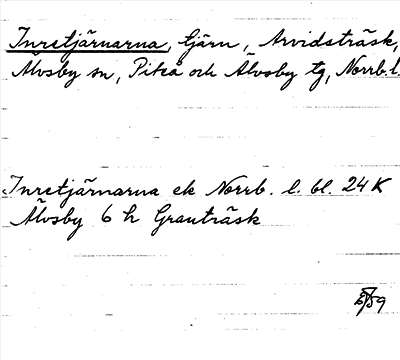 Inretjärnarna, tjärn, Arvidsträsk,
Älvsby sn, Piteå och Älvsby tg, Norrb. l.
Inretjärnarna ek Norrb. l. bl. 24 K
Älvsby 6 h Granträsk
/59